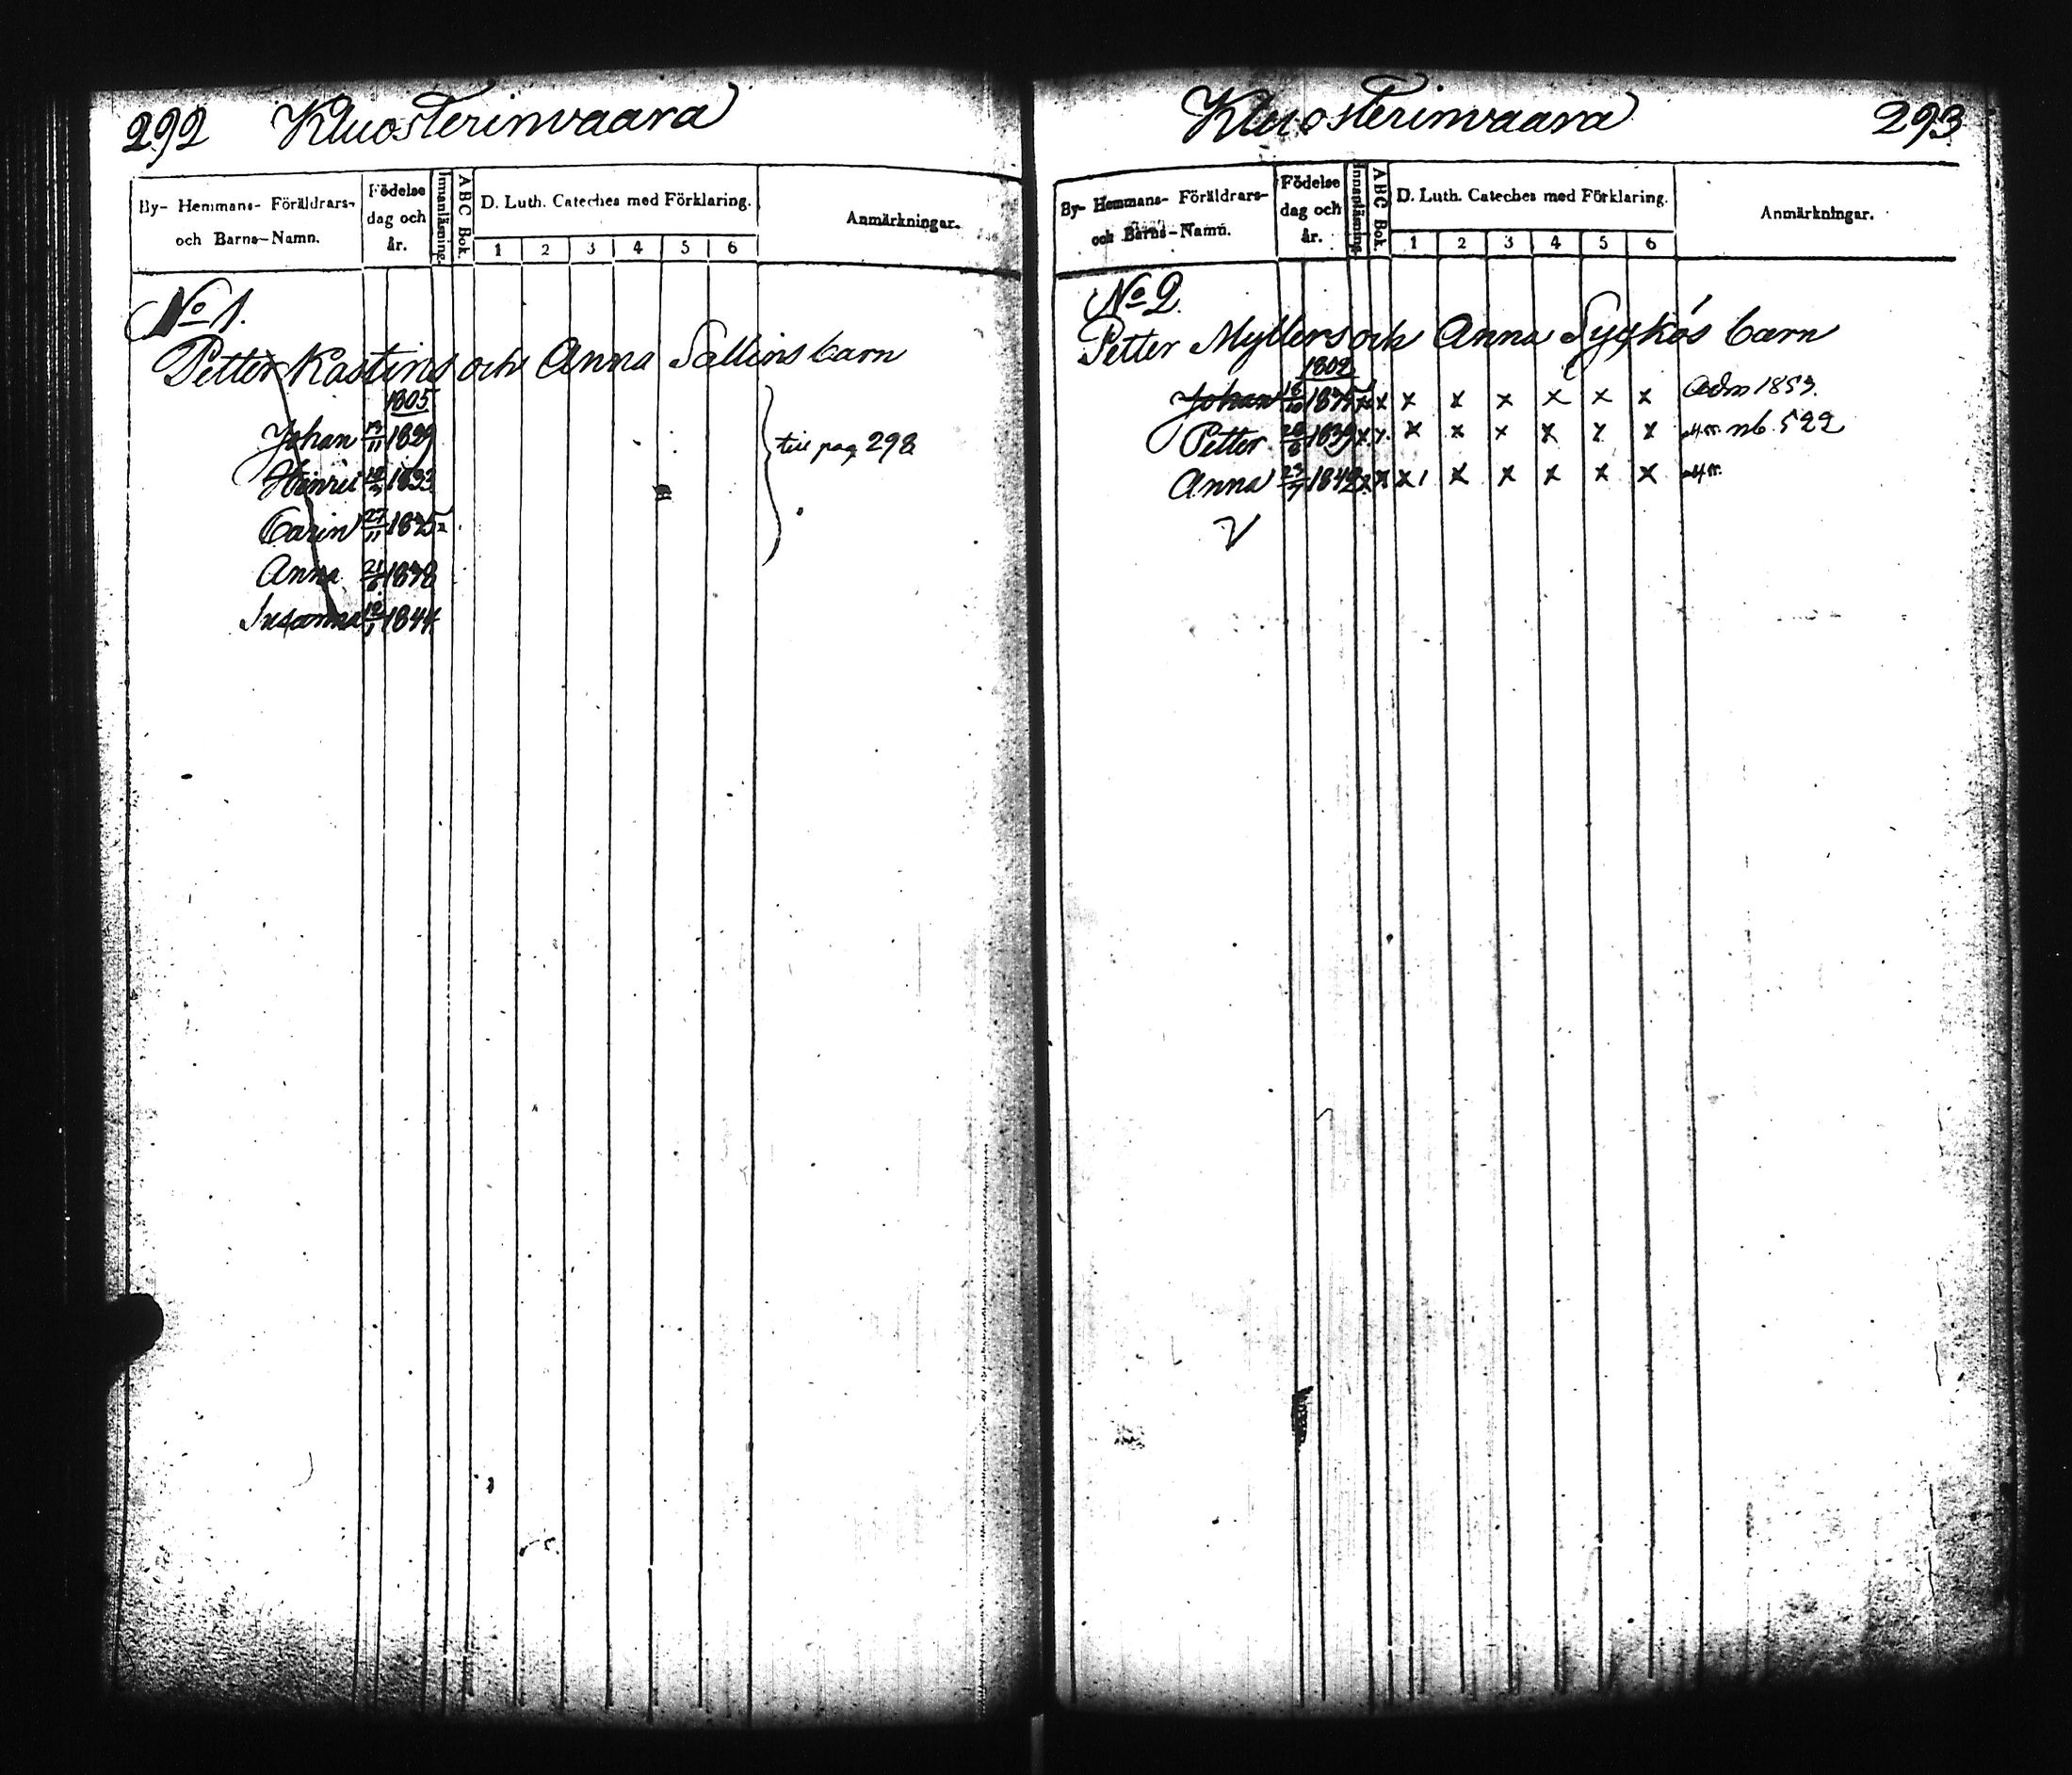 292 Kluosterinvaara
By- Hemmans- Föräldrars- och Barns-Namn.
Födelse dag och år.
Innanläsning.
A B C Bok.
D. Luth. Cateches med Förklaring.
1 2 3 4 5 6
Anmärkningar.
No 1.
Petter Kastins och Anna Sallins barn
1805
Johan 1829
Hinric 1833
Carin 27/11 1835
Anna 21/6 1838
Susanna 1844
till pag 298
Kluosterinvaara 293
By- Hemmans- Föräldrars- och Barns-Namn.
Födelse dag och år.
Innanläsning.
A B C Bok.
D. Luth. Cateches med Förklaring.
1 2 3 4 5 6
Anmärkningar.
No 2.
Petter Myllers och Anna Sygkös barn
1802
Johan x x x x x x x x Adm 1853.
Petter 1839 x x x x x x x x nb. 522
Anna 1842 x x x x x x x x